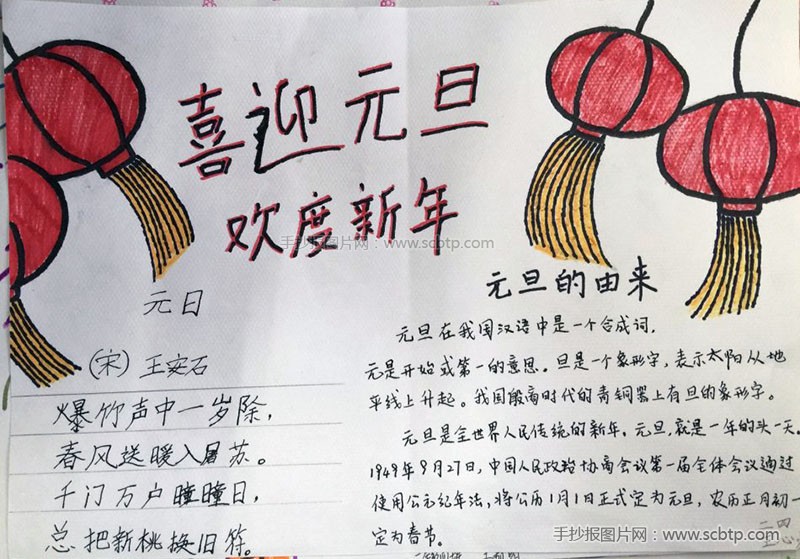 喜迎元旦
欢度新年
手抄报图片网：www.scbtp.com
元日
(宋) 王安石
爆竹声中一岁除,
春风送暖入屠苏。
千门万户曈曈日,
总把新桃换旧符。
元旦的由来
元旦在我国汉语中是一个合成词.
元是开始或第一的意思。旦是一个象形字,表示太阳从地
平线上升起。我国殷商时代的青铜器上有旦的象形字。
元旦是全世界人民传统的新年,元旦,就是一年的头一天。
1949年9月27日,中国人民政治协商会议第一届全体会议通过
使用公元纪年法,将公历1月1日正式定为元旦,农历正月初一
定为春节。
手抄报图片网：www.scbtp.com